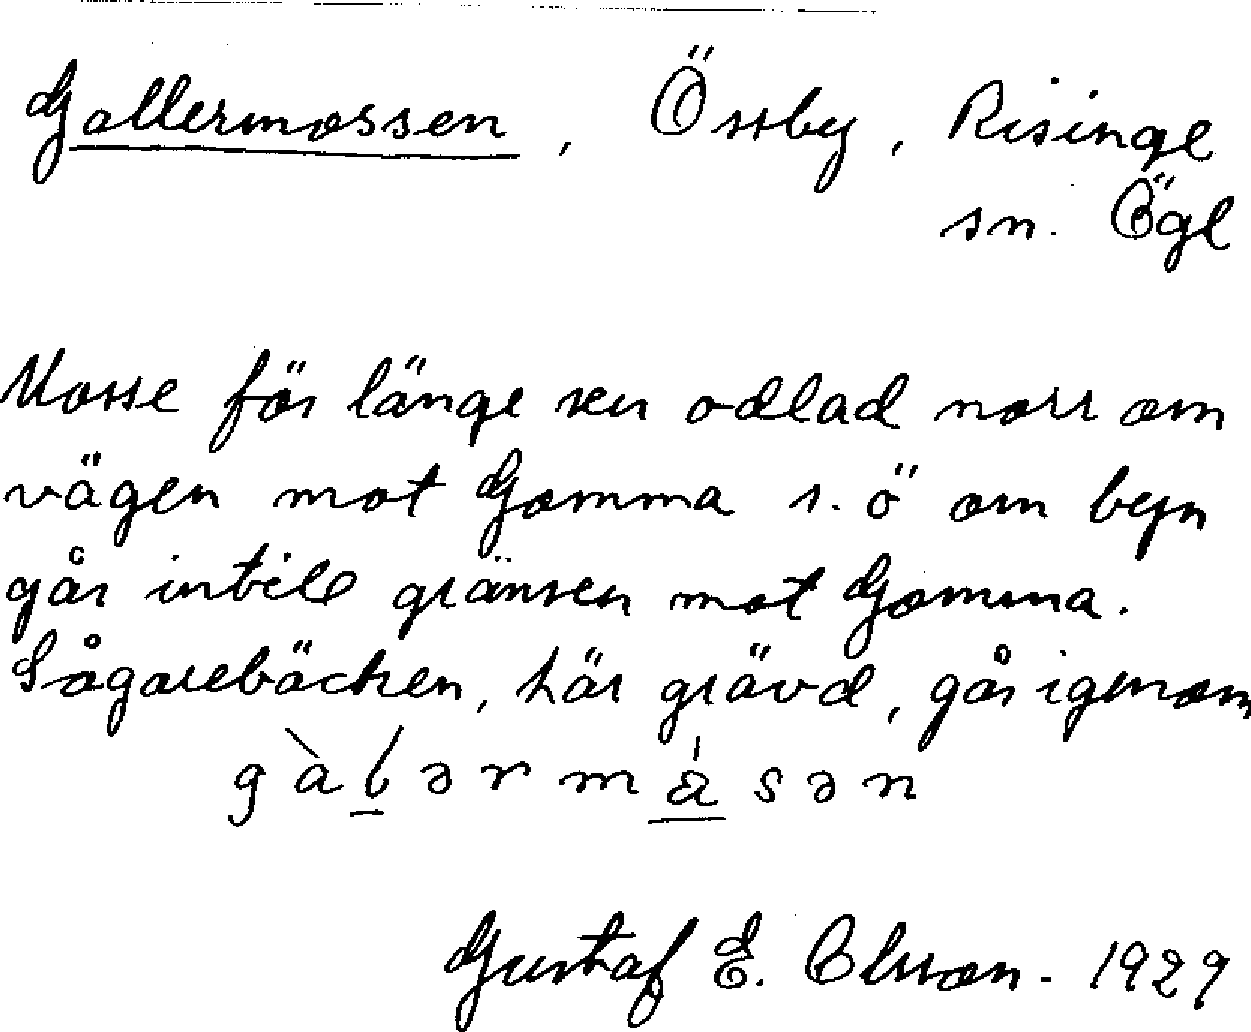 Gallermossen, Össby, Risinge
sn. Ögl
Mosse för länge sen odlad norr om
vägen mot Gomma s.ö om byn
går intill gränsen mot Gomma.
Sågarebäcken, här grävd, går igenom
gàlərmåsən
Gustaf E. Olsson. 1929